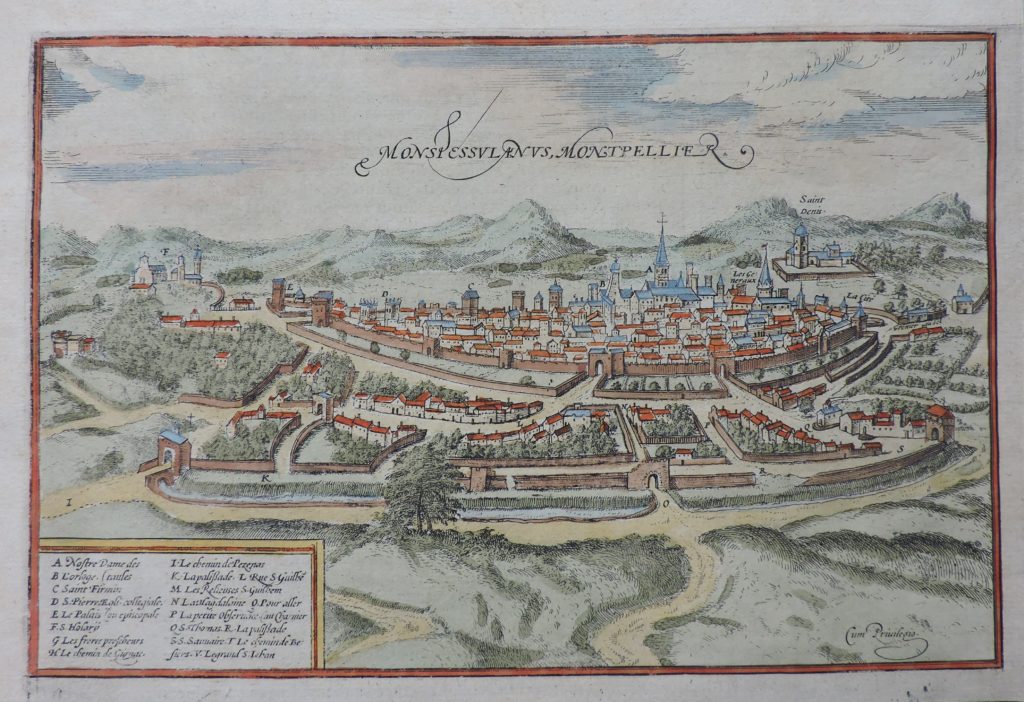 MONSPESSVLANVS, MONTPELLIER.
Saint
Denis
F
E
D
C
B
A
Les Ge
neraux
K
I
O
R
Q
S
A Nostre Dame des
B L'orloge. (taules
C Saint Firmin
D S. Pierre Eglise collegiale.
E Le Palais ou episcopale
F. S. Holary
G Les freres prescheurs
H Le chemin de Gignac
I. Le chemin de Pezenas
K. La palissade. L. Rue S. Guilhē
M. Les Relieuses S. Guilhem
N La Magdalaine O. Pour aller
P La petite Observance (au Charnier
Q S. Thomas. R. La palissade
S. S. Sauuaire. T. Le chemin de Be-
siers. V. Le grand S. Iehan
Cum Privilegio